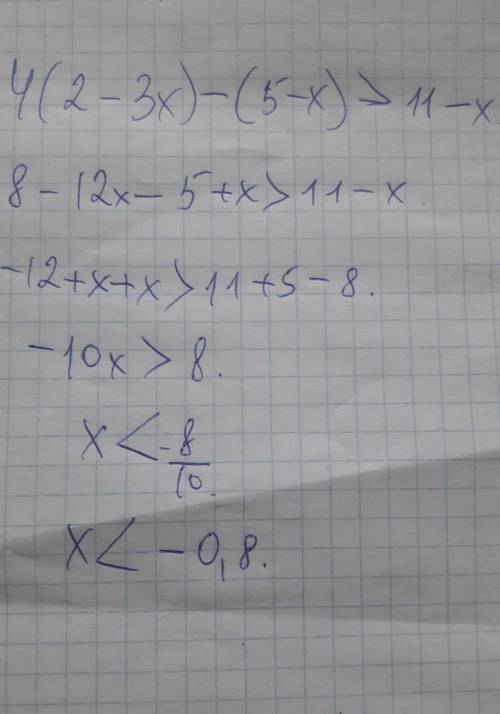 4(2-3x)-(5-x)>11-x
8-12x-5+x>11-x.
-12+x+x>11+5-8.
-10x>8.
x<-8/10.
x<-0,8.